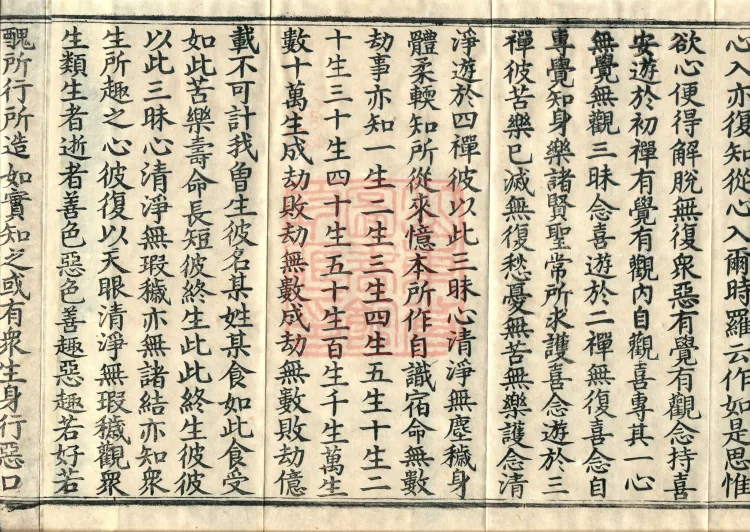 心入亦復知從心入爾時羅云作如是思惟
欲心便得解脫無復衆惡有覺有觀念持喜
安遊於初禪有覺有觀內自觀喜專其一心
無覺無觀三昧念喜遊於二禪無復喜念自
專覺知身樂諸賢聖常所求護喜念遊於三
禪彼苦樂已滅無復愁憂無苦無樂護念清
淨遊於四禪彼以此三昧心清淨無塵穢身
體柔輭知所從來憶本所作自識宿命無數
劫事亦知一生二生三生四生五生十生二
十生三十生四十生五十生百生千生萬生
數十萬生成劫敗劫無數成劫無數敗劫億
載不可計我曾生彼名某姓某食如此食受
如此苦樂壽命長短彼終生此此終生彼彼
以此三昧心清淨無瑕穢亦無諸結亦知衆
生所趣之心彼復以天眼清淨無瑕穢觀衆
生類生者逝者善色惡色善趣惡趣若好若
醜所行所造如實知之或有衆生身行惡口